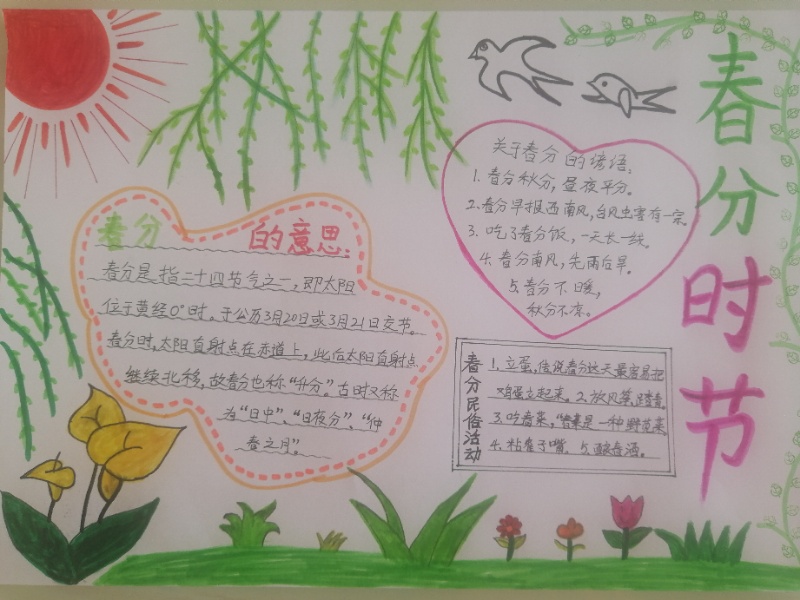 春分时节
春分的意思:
春分是指二十四节气之一,即太阳
位于黄经0°时。于公历3月20日或3月21日交节。
春分时,太阳直射点在赤道上,此后太阳直射点
继续北移,故春分也称“升分”。古时又称
为“日中”、“日夜分”、“仲
春之月”。
关于春分的谚语:
1. 春分秋分,昼夜平分。
2. 春分早报西南风,台风虫害有一宗。
3. 吃了春分饭,一天长一线。
4. 春分南风,先雨后旱。
5. 春分不暖,
秋分不凉。
春分民俗活动
1. 立蛋,传说春分这天最容易把
鸡蛋立起来。2. 放风筝,踏青。
3. 吃春菜,“春菜是一种野苋菜。
4. 粘雀子嘴 5. 酿春酒。